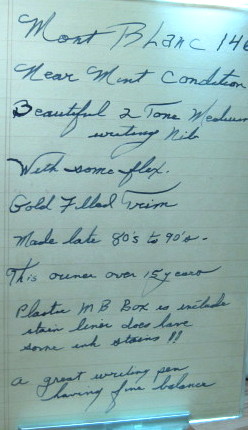 Mont Blanc 146
Near Mint Condition
Beautiful 2 Tone Medium
writing Nib
With some flex.
Gold Filled Trim
Made late 80's to 90's.
This owner over 15 years
Plastic MB Box is include
stain liner does have
some ink stains !!
a great writing pen
having fine balance